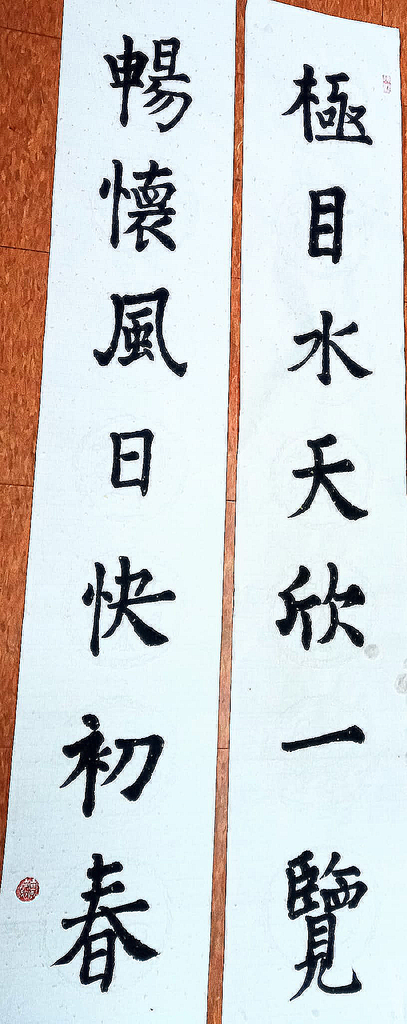 極目水天欣一覽
暢懷風日快初春